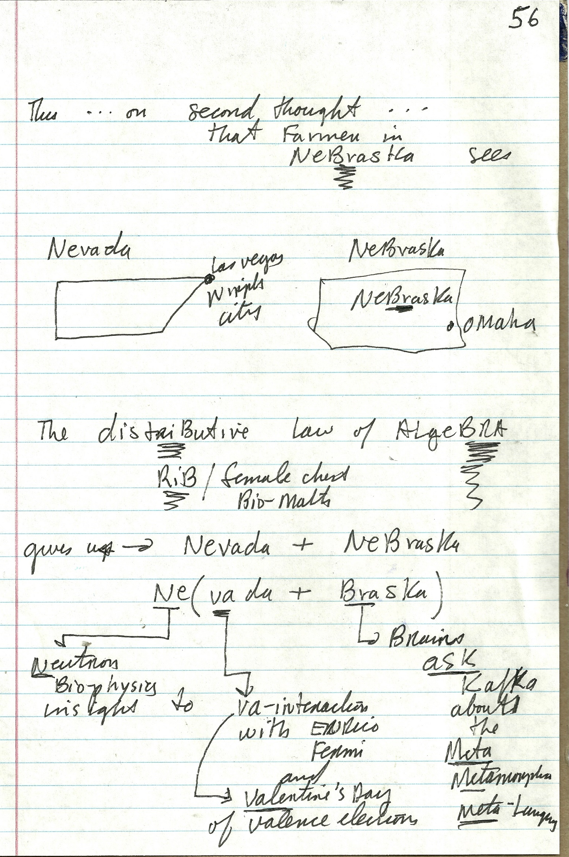 56
This ... on second thought ...
that Farmer in
NeBraska sees
Nevada
Las vegas
city
NeBraska
NeBraska
Omaha
The distriButive Law of AlgeBRA
RiB / female chest
Bio-Math
gives us → Nevada + NeBraska
Ne(vada + Braska)
Neutron
Bio-physics
insight to
va-interaction
with ENRico
Fermi
and
Valentine's Day
of valence electrons
Brains
ask
Kafka
about
the
Meta
Metamorphosis
Meta-